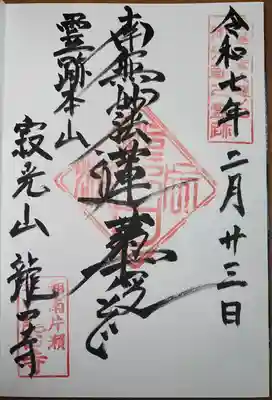 令和七年 二月廿三日
南無妙法蓮華経
霊跡本山
寂光山 龍口寺